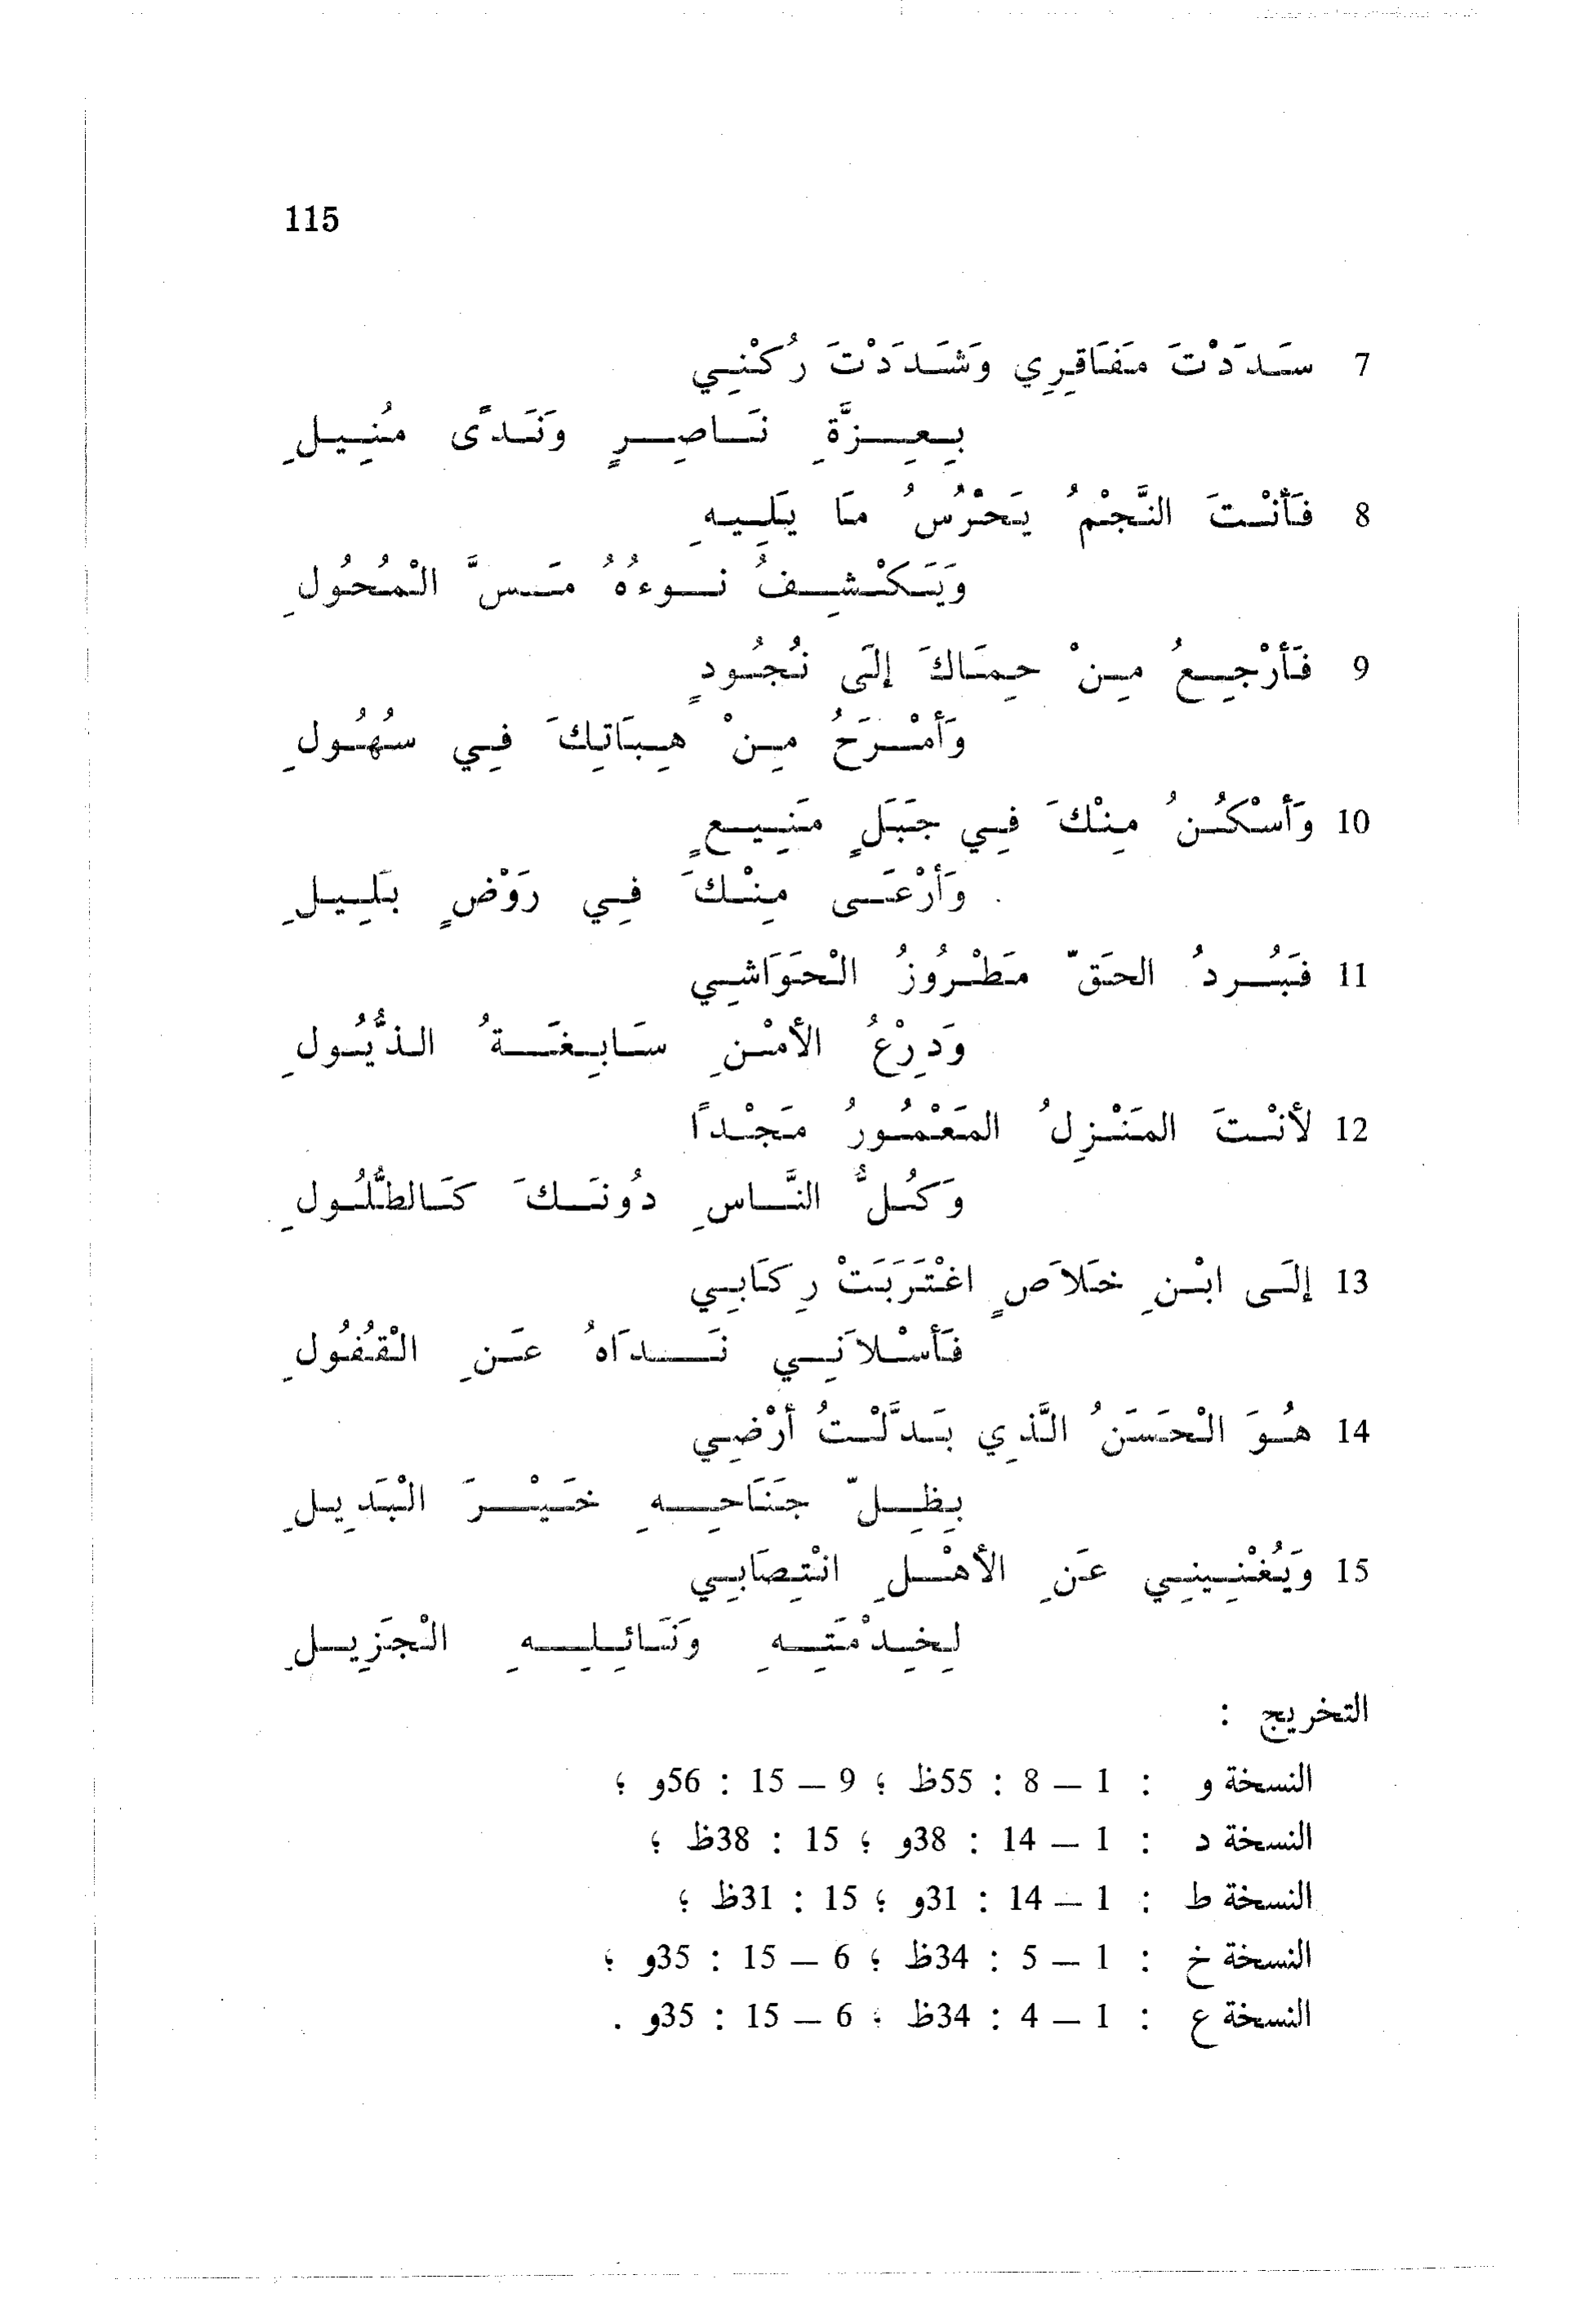 115
7 سَدَدْتَ مَفَاقِرِي وَشَدَدْتَ رُكْنِي
بِعِزَّةِ نَاصِرٍ وَنَدًى مُنِيلِ
8 فَأنْتَ النَّجْمُ يَحْرُسُ مَا يَلِيهِ
وَيَكْشِفُ نوءُهُ مَسَّ الْمُحُولِ
9 فَأرْجِعُ مِنْ حِمَاكَ إلَى نُجُودٍ
وَأمْرَحُ مِنْ هِبَاتِكَ فِي سُهُولِ
10 وَأسْكُنُ مِنْكَ فِي جَبَلٍ مَنِيعٍ
وَأرْعَى مِنْكَ فِي رَوْضٍ بَلِيلِ
11 فَبُردُ الحَقّ مَطْرُوزُ الْحَوَاشِي
وَدِرْعُ الأمْنِ سَابِغَةُ الذُّيُولِ
12 لأنْتَ المَنْزِلُ المَعْمُورُ مَجْداً
وَكُلُّ النَّاسِ دُونَكَ كَالطُّلُولِ
13 إلَى ابْنِ خَلاَصٍ اغْتَرَبَتْ رِكَابِي
فَأسْلاَنِي نَدَاهُ عَنِ الْقُفُولِ
14 هُوَ الْحَسَنُ الَّذِي بَدَّلْتُ أرْضِي
بِظِلّ جَنَاحِهِ خَيْرَ الْبَدِيلِ
15 وَيُغْنِينِي عَنِ الأهْلِ انْتِصَابِي
لِخِدْمَتِهِ وَنَائِلِهِ الْجَزِيلِ
التخريج :
النسخة و : 1 — 8 : 55ظ ؛ 9 — 15 : 56و ؛
النسخة د : 1 — 14 : 38و ؛ 15 : 38ظ ؛
النسخة ط : 1 — 14 : 31و ؛ 15 : 31ظ ؛
النسخة خ : 1 — 5 : 34ظ ؛ 6 — 15 : 35و ؛
النسخة ع : 1 — 4 : 34ظ ؛ 6 — 15 : 35و .